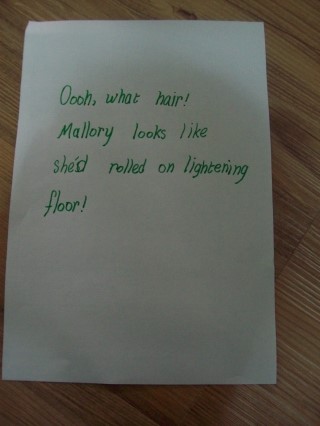 Oooh, what hair!
Mallory looks like
she'd rolled on lightening
floor!